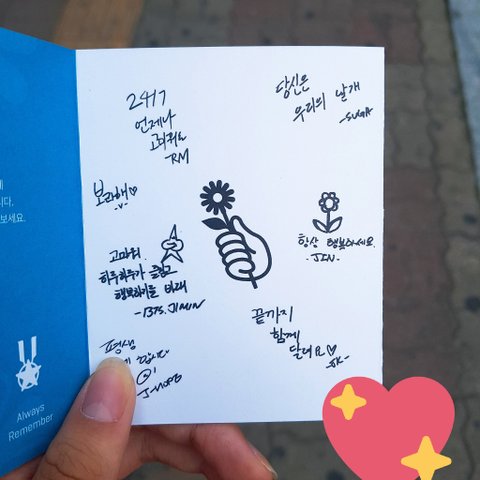 24/7
언제나
고마워요
-RM
당신은
우리의 날개
-SUGA
보라해♡
-V-
고마워.
하루하루가 즐겁고
행복하기를 바래
-BTS. JIMIN
항상 행복하세요.
-JIN-
평생
J-HOPE
끝까지
함께
달려요♡
-JK-
다.
보세요.
Always
Remember